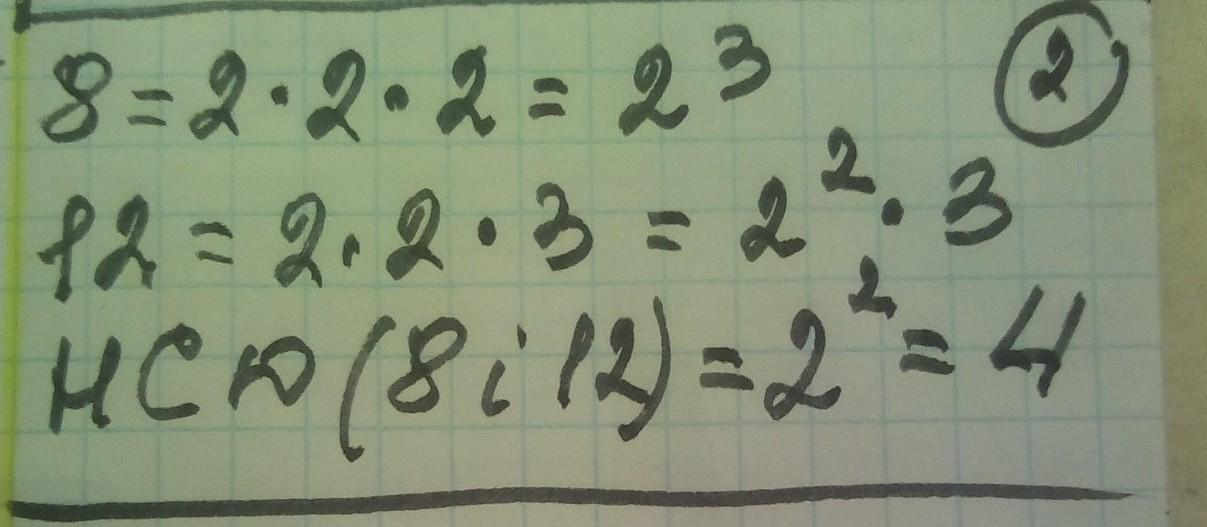 8 = 2 · 2 · 2 = 2³ ②
12 = 2 · 2 · 3 = 2² · 3
НСД (8 і 12) = 2² = 4